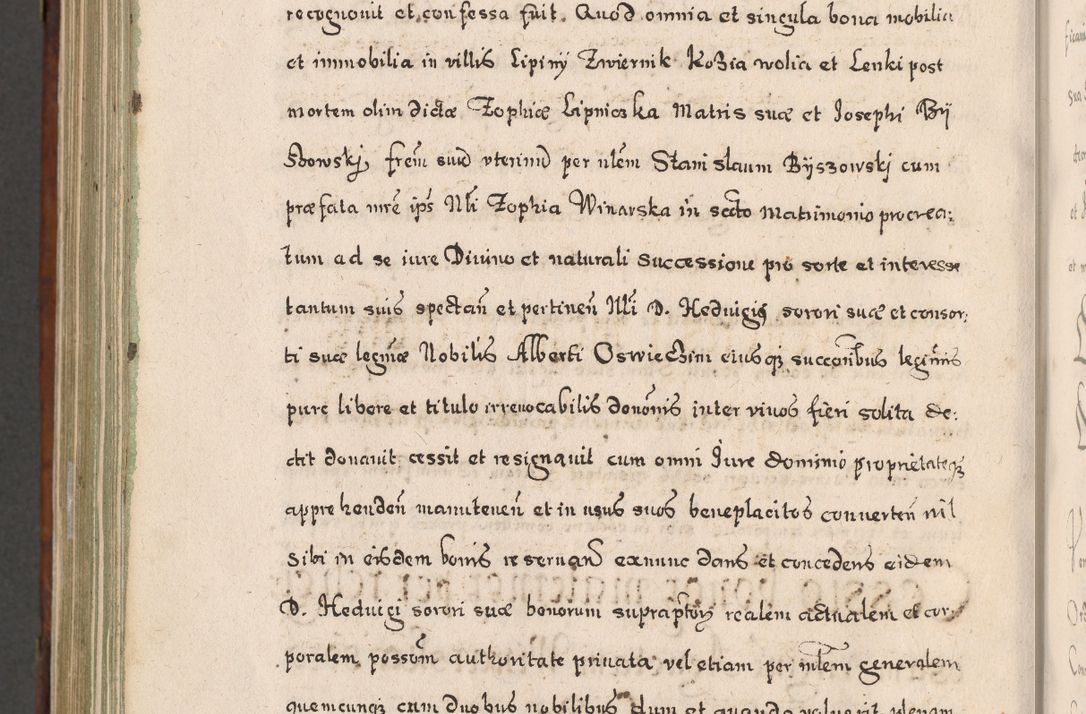 recognouit et confessa fuit. Quod omnia et singula bona mobilia
et immobilia in villis Lipiny Zwiernik Kozia wolia et Lenki post
mortem olim dictæ Zophiæ Lipniczka Matris suæ et Josephi Bij
szowskj, frẽm suũ vterinũ per nlẽm Stanislaum Bijszowskj cum
præfata mrẽ ips Nli Zophia Winarska in scto Matrimonio procrea:
tum ad se iure Diuino et naturali Successione pro sorte et interesse
tantum suis spectañ et pertineñ Nli D. Heduigis sorori suæ et consor:
ti suæ legmæ Nobilis Alberti Oswieczim eiusq succoribus legmis
pure libere et titulo irreuocabilis dononis inter viuos fieri solita de:
dit donauit cessit et resignauit cum omni Jure dominio proprietateq
apprehendeñ manuteneñ et in usus suos beneplacitos conuerteñ nil
Sibi in eisdem bonis reseruañ exnunc dans et concedens eidem
D. Heduigi sorori suæ bonorum suprapto realem actualem et cor
poralem possom authoritate priuata vel etiam per mlem generalem
quemcunq cum duobus nobilibus dum et quando voluerit plenam